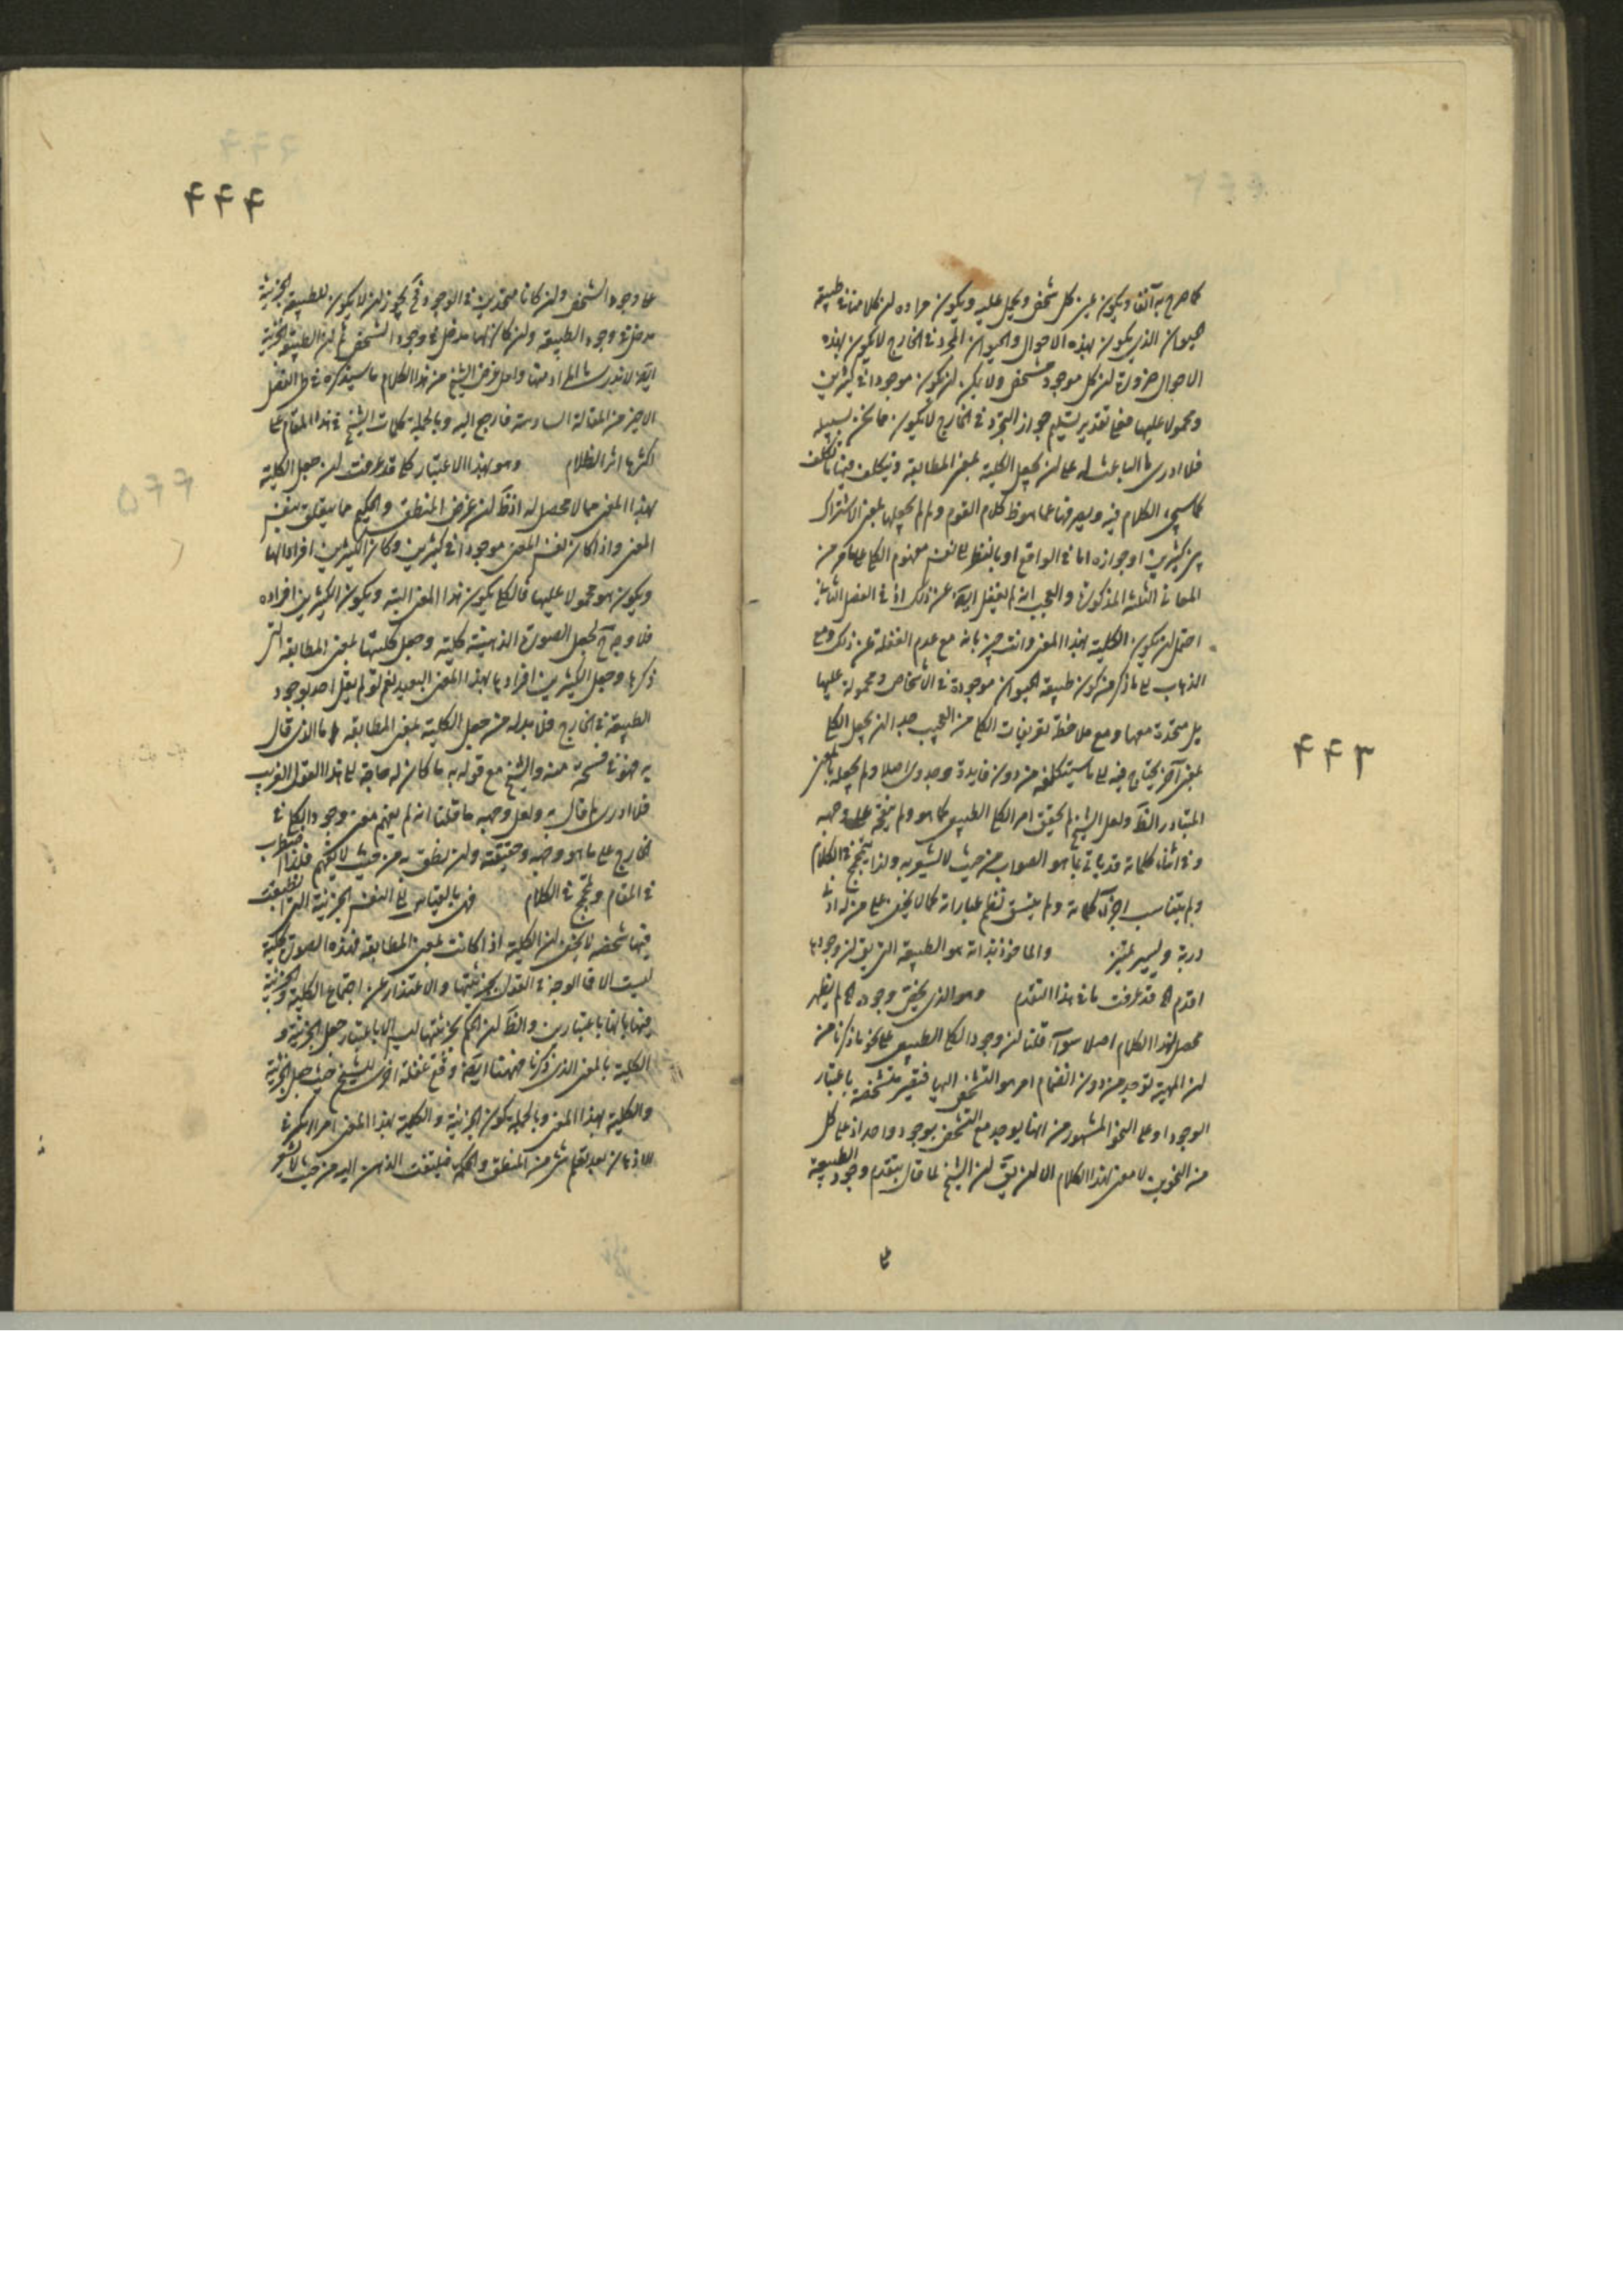 كما صرح به آنفا ويكون عين كل شخص ويحمل عليه ويكون مراده ان كلامنا في طبيعة
حيوان الذي يكون بهذه الاحوال والحيوان المجرد في الخارج لا يكون بهذه
الاحوال ضرورة ان كل موجود مشخص ولا يمكن ان يكون موجودا في كثيرين
ومحمولا عليها فعلى تقدير تسليم جواز التجرد في الخارج لا يكون مما نحن بسبيله
فلا ادري ما الباعث له على ان يجعل الكلية بمعنى المطابقة ويتكلف فيها ما تكلف
كما سيجيء الكلام فيه ويصرفها عما هو ظ كلام القوم ولم لم يجعلها بمعنى الاشتراك
بين كثيرين او جوازه اما في الواقع او بالنظر الى نفس مفهوم الكلي على ما مر من
المعاني الثلثة المذكورة والعجب انه لم يغفل ايضا عن ذلك اذ في الفصل الثاني
احتمل ان يكون الكلية بهذا المعنى وانت خبير بانه مع عدم الغفلة عن ذلك ومع
الذهاب الى ما ذكر من كون طبيعة الحيوان موجودة في الاشخاص ومحمولة عليها
بل متحدة معها ومع ملاحظة تعريفات الكلي من العجب جدا ان يجعل الكلي
بمعنى آخر يحتاج فيه الى ما سيتكلفه من دون فايدة وجدوى اصلا ولم يجعله بالمعنى
المتبادر الظ ولعل الشيخ لم يحقق امر الكلي الطبيعي كما هو ولم ينقحه على وجهه
وفي اثناء كلماته قد يأتي بما هو الصواب من حيث لا يشعر به ولذا يتمجمج في الكلام
ولم يتناسب اجزاء كلماته ولم يتسق نظم عباراته كما لا يخفى على من له ادنى
دربة ويسير تميز والماخوذ بذاته هو الطبيعة التي يق ان وجودها
اقدم اه قد عرفت ما في هذا التقدم وهو الذي يخص وجوده اه لم يظهر
محصل لهذا الكلام اصلا سواء قلنا ان وجود الكلي الطبيعي على نحو ما ذكرنا من
ان المهية توجد من دون انضمام امر هو التشخص اليها فتصير متشخصة باعتبار
الوجود او على النحو المشهور من انها يوجد مع التشخص بوجود واحد اذ على كل
من النحوين لا معنى لهذا الكلام الا ان يق ان الشيخ لما قال بتقدم وجود الطبيعة
٤٤٣
على
٤٤٤
على وجود الشخص وان كانا متحدين في الوجود فح يجوز ان لا يكون للطبيعة الجزئية
مدخل في وجود الطبيعة وان كان لها مدخل في وجود الشخص ثم ان الطبيعة الجزئية
ايضا لا ندري ما المراد منها ولعل غرض الشيخ من هذا الكلام ما سيذكره في الفصل
الاخير من المقالة السادسة فارجع اليه وبالجملة كلمات الشيخ في هذا المقام على
اكثرها اثر الظلام وهو بهذا الاعتبار كلي قد عرفت ان جعل الكلية
بهذا المعنى مما لا محصل له اذ ظ ان غرض المنطقي والحكيم مما يتعلق بنفس
المعنى واذا كان نفس المعنى موجودا في كثيرين وكان الكثيرين افرادا لها
ويكون هو محمولا عليها فالكلي يكون هذا المعنى البتة ويكون الكثيرين افراده
فلا وجه ح لجعل الصورة الذهنية كلية وجعل كليتها بمعنى المطابقة التي
ذكرها وجعل الكثيرين افرادها بهذا المعنى البعيد نعم لو لم يقل احد بوجود
الطبيعة في الخارج فلا بد له من جعل الكلية بمعنى المطابقة واما الذي قال
به فهو في فسحة منه والشيخ مع قوله به ما كان له حاجة الى هذا القول الغريب
فلا ادري ما قال به ولعل وجهه ما قلنا انه لم يفهم معنى وجود الكلي في
الخارج على ما هو وجهه وحقيقته وان نطق به من حيث لا يفهم فلذا اضطرب
في المقام وتمجمج في الكلام فهي بالقياس الى النفس الجزئية التي انطبعت
فيها شخصه لا يخفى ان الكلية اذا كانت بمعنى المطابقة فهذه الصورة كلية
ليست الا فالوجه في القول بجزئيتها والاعتذار عن اجتماع الكلية والجزئية
فيها بانها باعتبارين والظ ان الحكم بجزئيتها ليس الا باعتبار جعل الجزئية و
الكلية بالمعنى الذي ذكرنا فههنا ايضا وقع غفلة اخرى للشيخ حيث جعل الجزئية
والكلية بهذا المعنى وبالجملة كون الجزئية والكلية بهذا المعنى امر مركوز في
الاذهان بعد تعلم شيء من المنطق والحكمة فيلتفت الذهن اليه من حيث لا يشعر